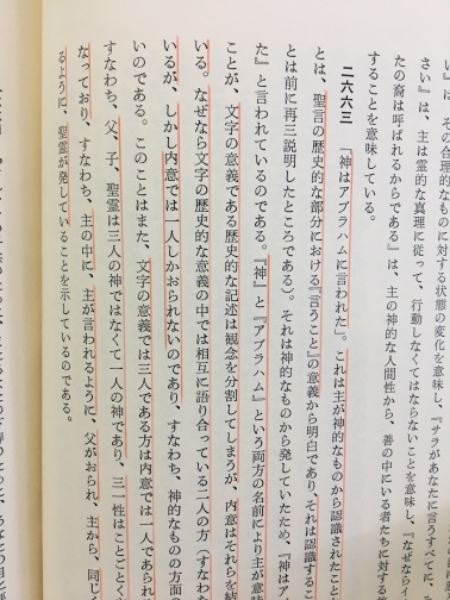 い』は、その合理的なものに対する状態の変化を意味し、『サラがあなたに言うすべてに、
さい』は、主は霊的な真理に従って、行動しなくてはならないことを意味し、『なぜならイ
たの裔は呼ばれるからである』は、主の神的な人間性から、善の中にいる者たちに対する
することを意味している。
二六六三 「神はアブラハムに言われた」。これは主が神的なものから認識されたこと
とは、聖言の歴史的な部分における『言うこと』の意義から明白であり、それは認識するこ
とは前に再三説明したところである)。それは神的なものから発していたため、『神はア
た』と言われているのである。『神』と『アブラハム』という両方の名前により主が意味
ことが、文字の意義である歴史的な記述は観念を分割してしまうが、内意はそれらを結
いる。なぜなら文字の歴史的な意義の中では相互に語り合っている二人の方(すなわ
いるが、しかし内意では一人しかおられないのであり、すなわち、神的なものの方面の
いのである。このことはまた、文字の意義では三人である方は内意では一人であられ
すなわち、父、子、聖霊は三人の神ではなくて一人の神であり、三一性はことごとく
なっており、すなわち、主の中に、主が言われるように、父がおられ、主から、同じく
るように、聖霊が発していることを示しているのである。